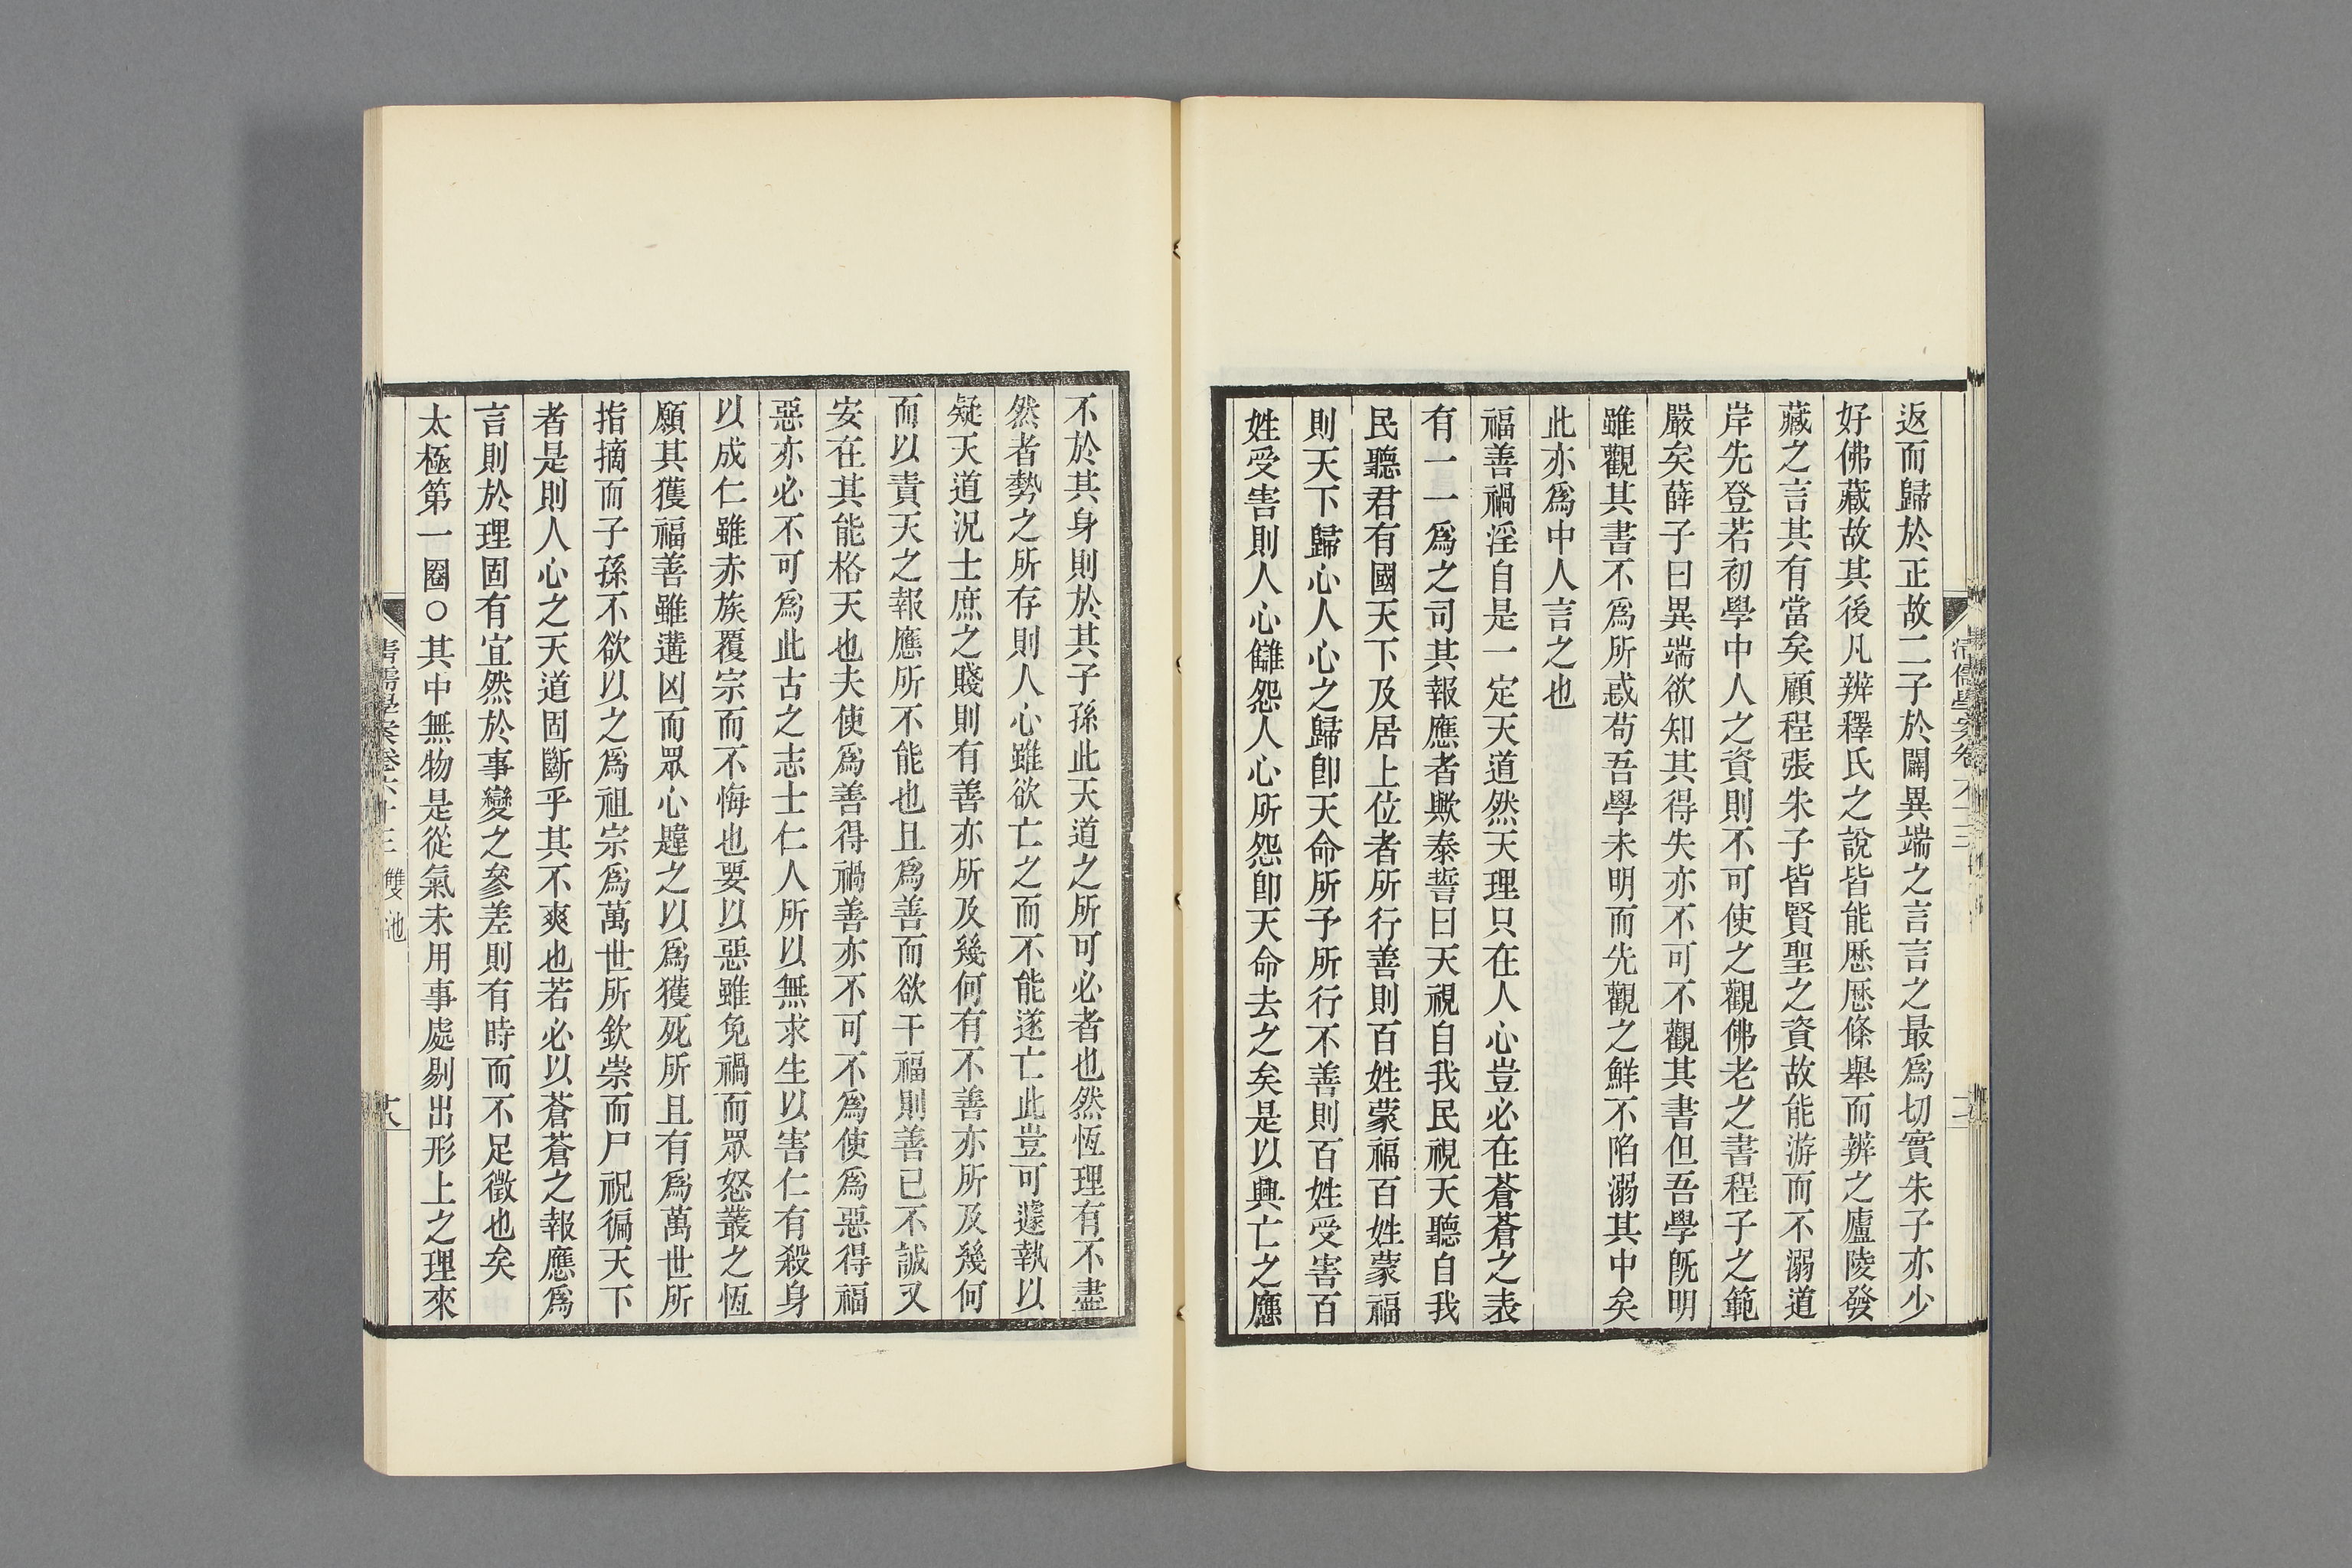 返而歸於正故二子於闢異端之言言之最爲切實朱子亦少
好佛藏故其後凡辨釋氏之說皆能歷歷條舉而辨之廬陵發
藏之言其有當矣顧程張朱子皆賢聖之資故能游而不溺道
岸先登若初學中人之資則不可使之觀佛老之書程子之範
嚴矣薛子曰異端欲知其得失亦不可不觀其書但吾學旣明
雖觀其書不爲所惑苟吾學未明而先觀之鮮不陷溺其中矣
此亦爲中人言之也
福善禍淫自是一定天道然天理只在人心豈必在蒼蒼之表
有一一爲之司其報應者歟泰誓曰天視自我民視天聽自我
民聽君有國天下及居上位者所行善則百姓蒙福百姓蒙福
則天下歸心人心之歸卽天命所予所行不善則百姓受害百
姓受害則人心讎怨人心所怨卽天命去之矣是以興亡之應
不於其身則於其子孫此天道之所可必者也然恆理有不盡
然者勢之所存則人心雖欲亡之而不能遂亡此豈可遽執以
疑天道況士庶之賤則有善亦所及幾何有不善亦所及幾何
而以責天之報應所不能也且爲善而欲干福則善已不誠又
安在其能格天也夫使爲善得禍善亦不可不爲使爲惡得福
惡亦必不可爲此古之志士仁人所以無求生以害仁有殺身
以成仁雖赤族覆宗而不悔也要以惡雖免禍而眾怒叢之恆
願其獲福善雖遘凶而眾心韙之以爲獲死所且有爲萬世所
指摘而子孫不欲以之爲祖宗爲萬世所欽崇而尸祝徧天下
者是則人心之天道固斷乎其不爽也若必以蒼蒼之報應爲
言則於理固有宜然於事變之參差則有時而不足徵也矣
太極第一圈○其中無物是從氣未用事處剔出形上之理來
清儒學案卷六十三 雙池